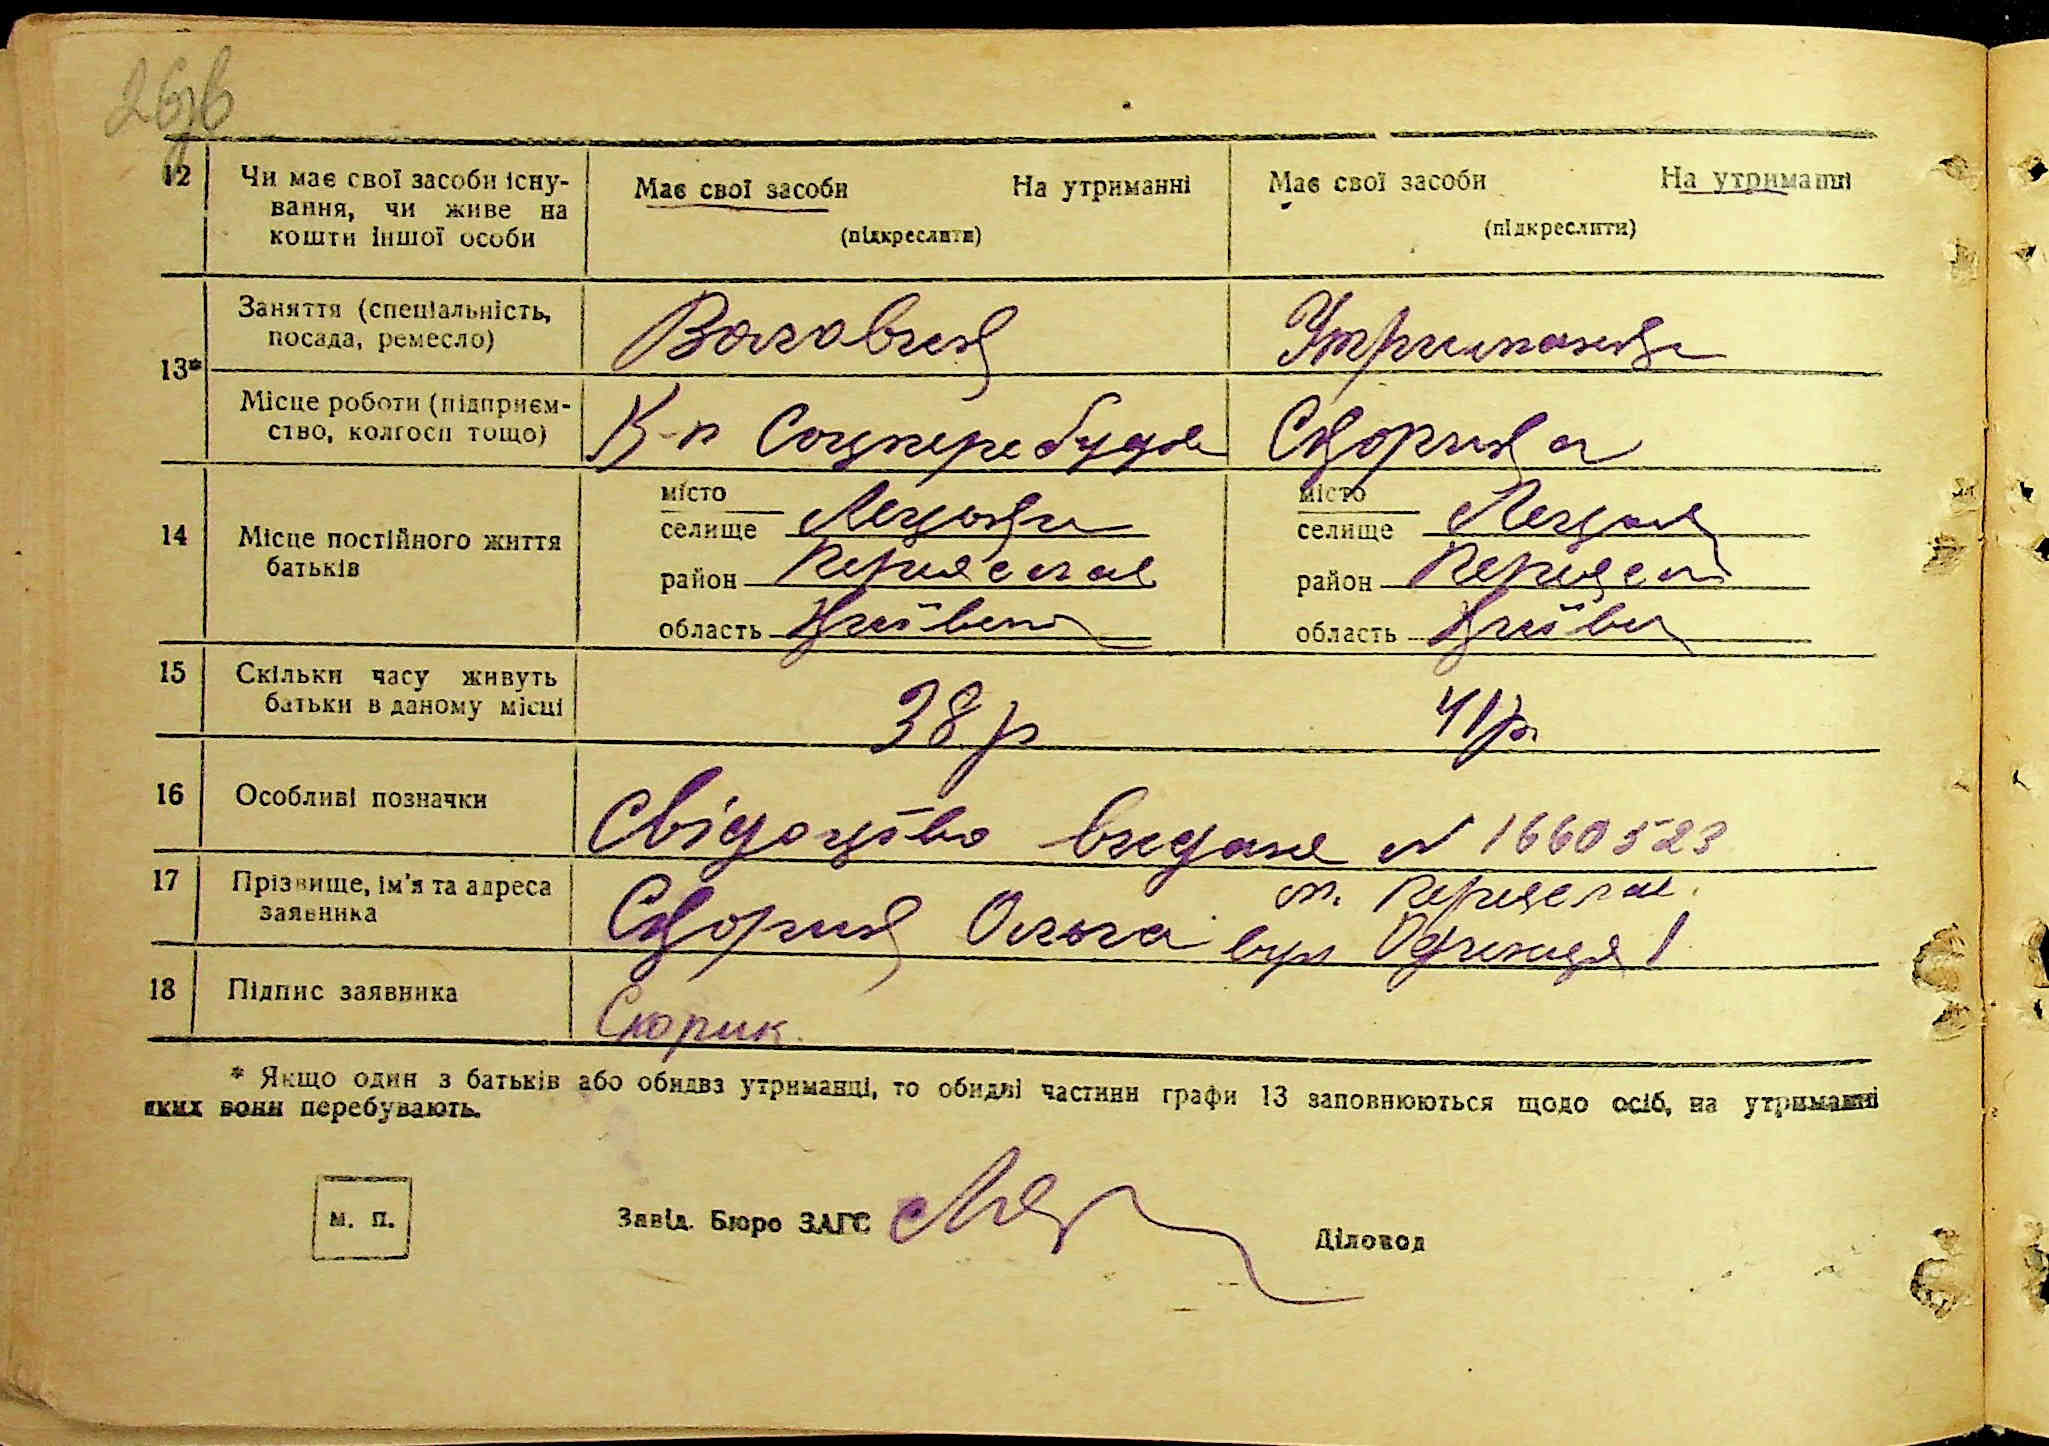 12 Чи має свої засоби існу-
вання, чи живе на
кошти іншої особи
Має свої засоби На утриманні
(підкреслити)
Має свої засоби На утриманні
(підкреслити)
13*
Заняття (спеціальність,
посада, ремесло)
Ваговик
Утриманка
Місце роботи (підприєм-
ство, колгосп тощо)
К-п Соцперебудов
Скорика
14 Місце постійного життя
батьків
місто
селище
район Переяслав
область Київськ
місто
селище
район Переясл
область Київс
15 Скільки часу живуть
батьки в даному місці
38 р
41 р.
16 Особливі позначки
Свідоцтво видане № 1660523
17 Прізвище, ім'я та адреса
заявника
м. Переяслав.
Скорик Ольга вул 1
18 Підпис заявника
Скорик.
* Якщо один з батьків або обидва утриманці, то обидві частини графи 13 заповнюються щодо осіб, на утриманні
яких вони перебувають.
М. П.
Завід. Бюро ЗАГС
Діловод